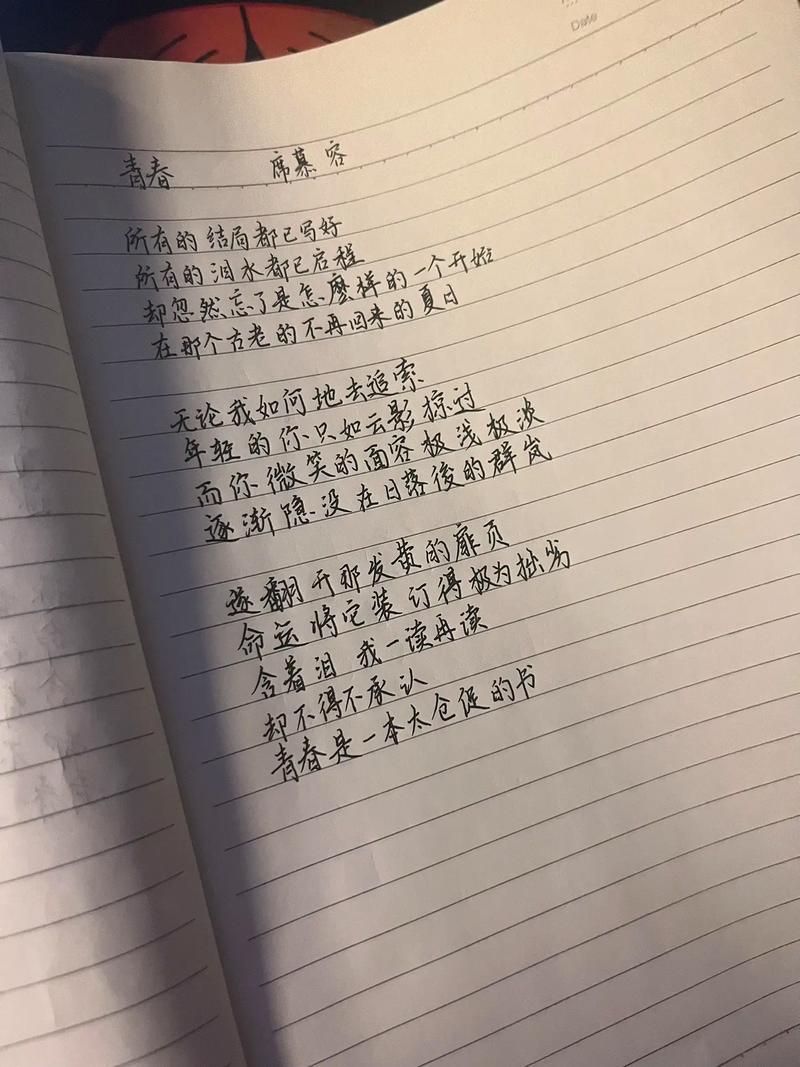 Date
青春 席慕容
所有的结局都已写好
所有的泪水都已启程
却忽然忘了是怎麼样的一个开始
在那个古老的不再回来的夏日
无论我如何地去追索
年轻的你只如云影掠过
而你微笑的面容极浅极淡
逐渐隐没在日落後的群岚
遂翻开那发黄的扉页
命运将它装订得极为拙劣
含着泪 我一读再读
却不得不承认
青春是一本太仓促的书